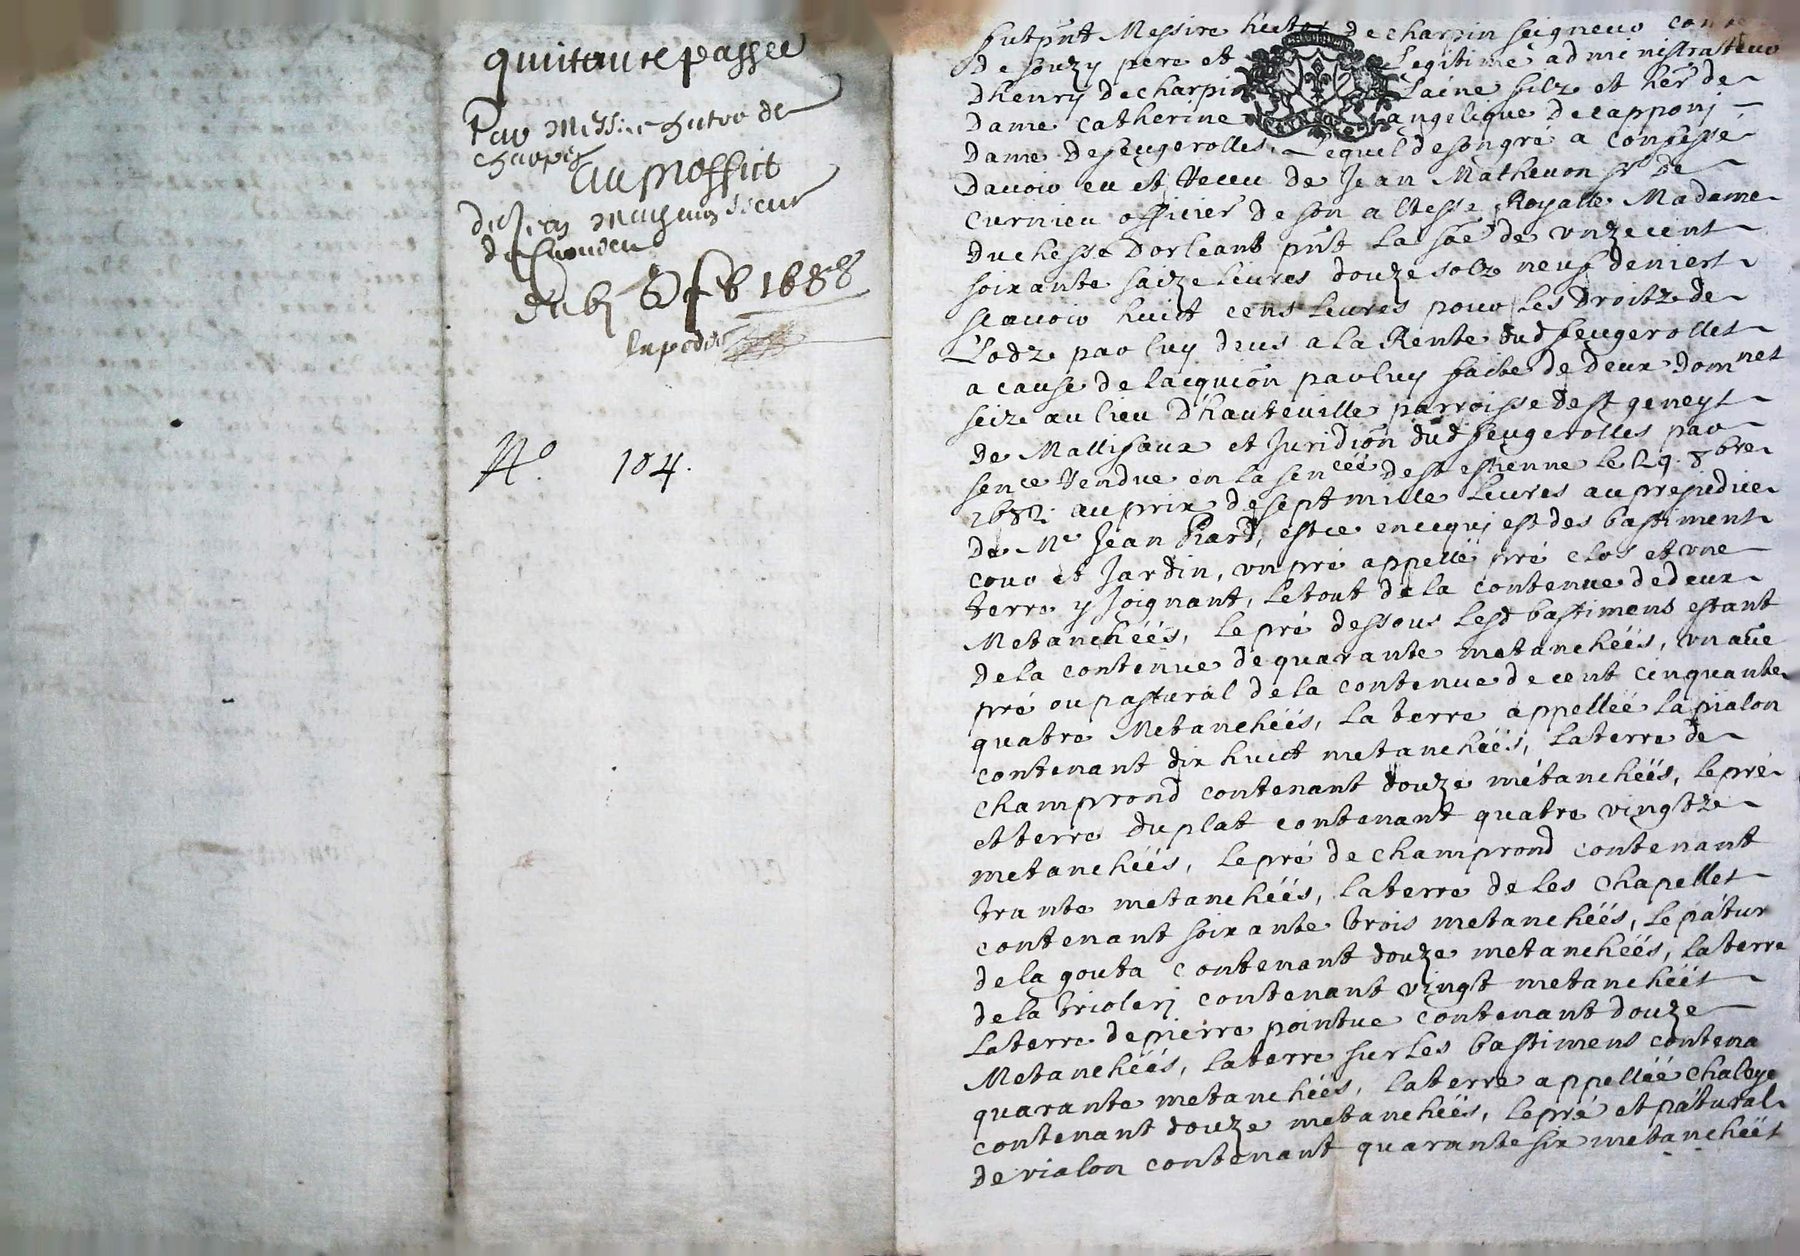 quittance passée
Par Messire hector de
charpin
au proffict
de Jean Matheuon sieur
de Curnieu
du 6 feb 1688
No. 104.
fut pñt Messire hector de charpin seigneur conte
de souzy pere et Legitime administrateur
dhenry decharpin Laine filz et her de
Dame catherine angelique decapponj
Dame defeugerolles, Lequel desongré a confessé
Dauoir eu et Receu de Jean Matheuon sr de
curnieu officier de son altesse Royalle Madame
Duchesse Dorleans pñt La soẽ de vnze cent
soixante saize Liures douze solz neuf deniers
scauoir huict cens Liures pour Les Droitz de
Lodz par luy deus a la Rente dud feugerolles
a cause de lacquion par luy faicte de deux domnes
seize au lieu D'hauteuille parroisse de st geneys
de Mallifaux et Juridion dud feugerolles par
sence Rendue en la sencéé de st estienne le 29. 8bre
1682. au prix de sept mille Liures au prejudice
de Me Jean Piard, estce en ce qui est des bastiment
cour et Jardin, vn pré appellé pré clos et vne
terre y Joignant, Le tout de la contenue de deux
Metanchéés, le pré dessous Lesd bastimens estant
de la contenue de quarante metanchéés, vn aũe
pré ou pastural de la contenue de cent cinquante
quatre Metanchéés, la terre appelléé La pialon
contenant dix huict metanchéés, la terre de
champrond contenant douze métanchéés, le pré
et terre du plat contenant quatre vingtze
metanchéés, le pré de champrond contenant
trante metanchéés, la terre de Les Chapelles
contenant soixante trois metanchéés, le patur
de la gouta contenant douze metanchéés, la terre
de la triolerj contenant vingt metanchéés
La terre de pierre pointue contenant douze
Metanchéés, la terre sur Les bastimens contena
quarante metanchéés, la terre appelléé chaleye
contenant douze metanchéés, le pré et patural
de vialon contenant quarante six metanchéés